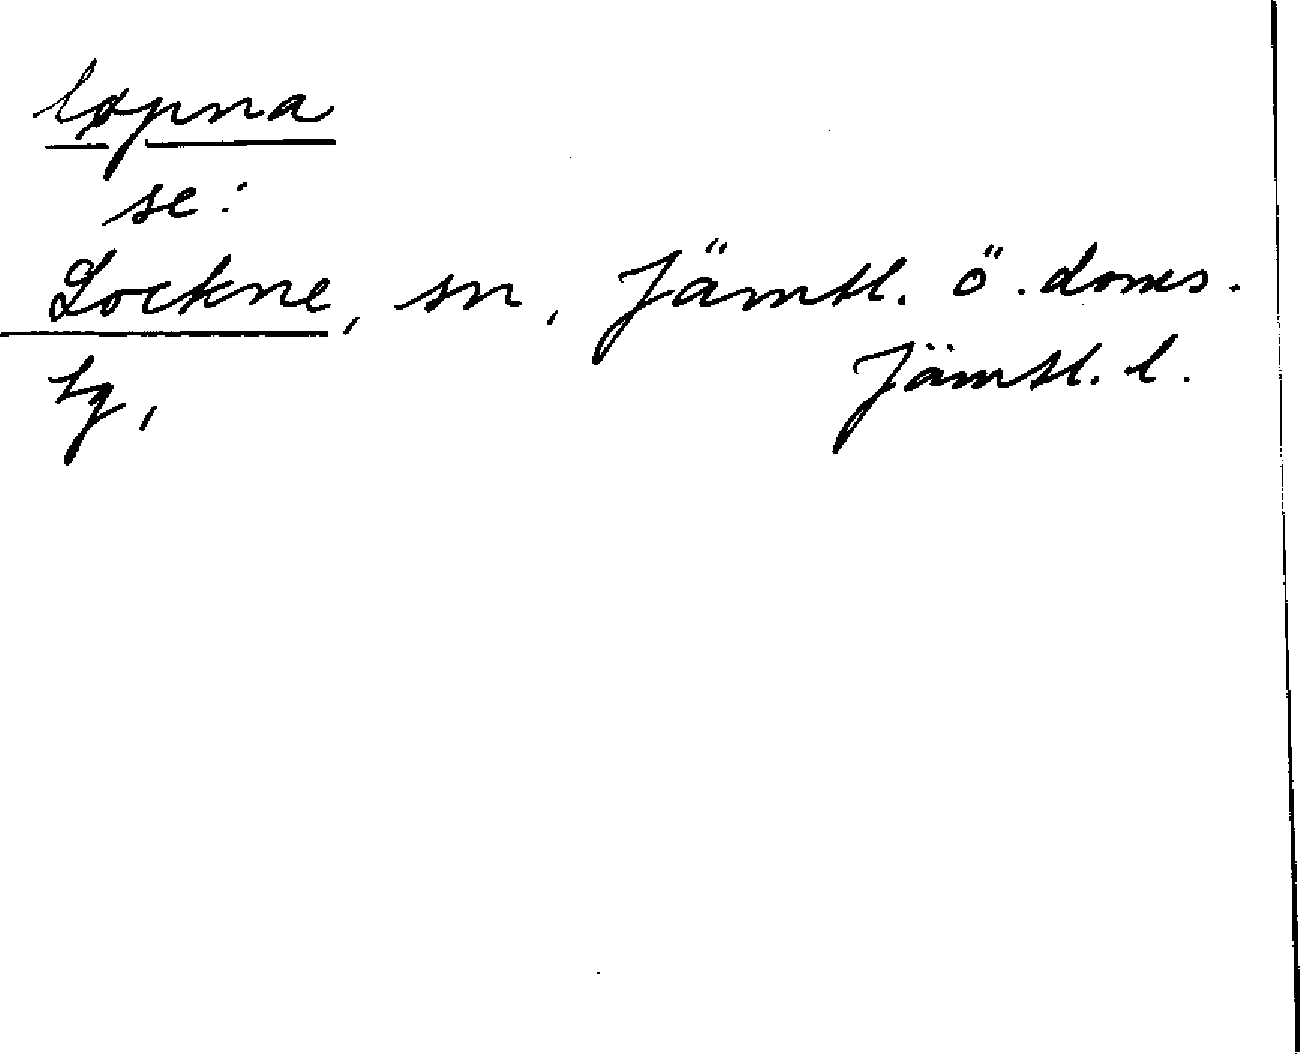 løpna
se:
Lockne, sn, Jämtl. ö. doms.
Jämtl. l.